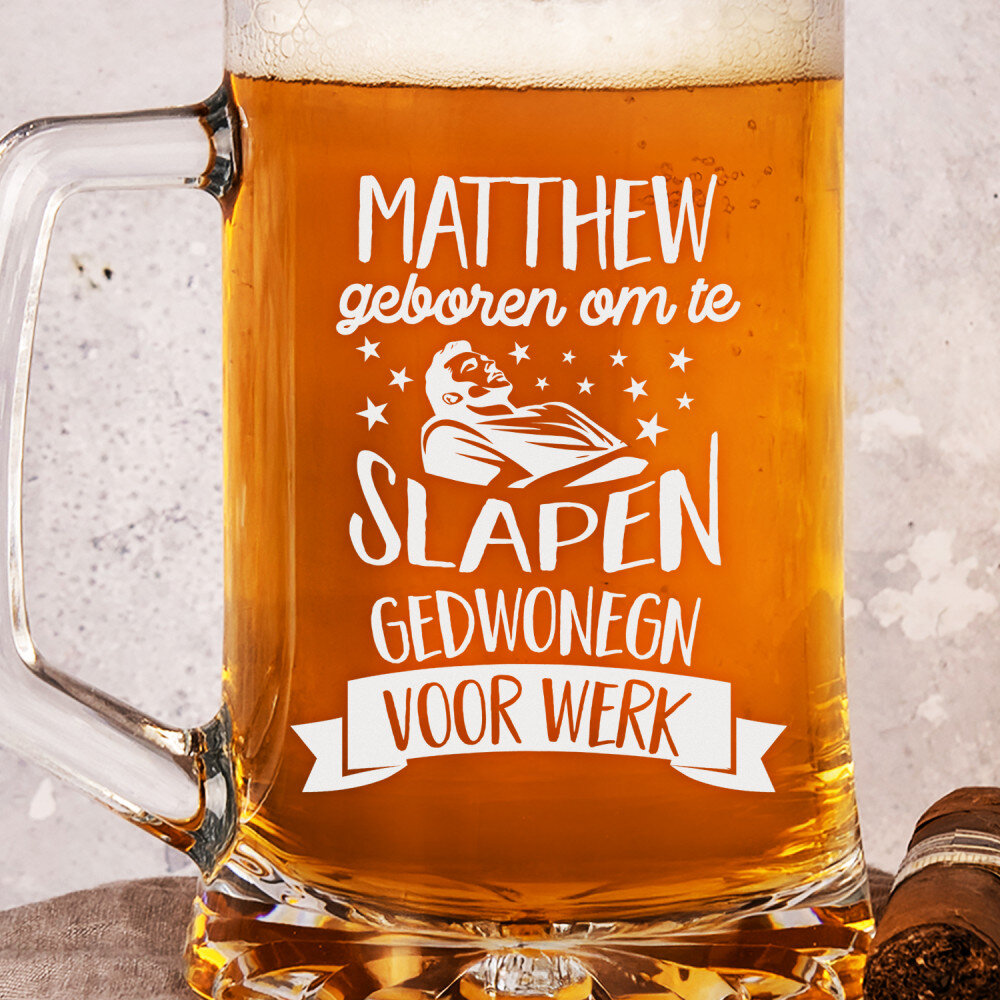 MATTHEW
geboren om te
SLAPEN
GEDWONEGN
VOOR WERK